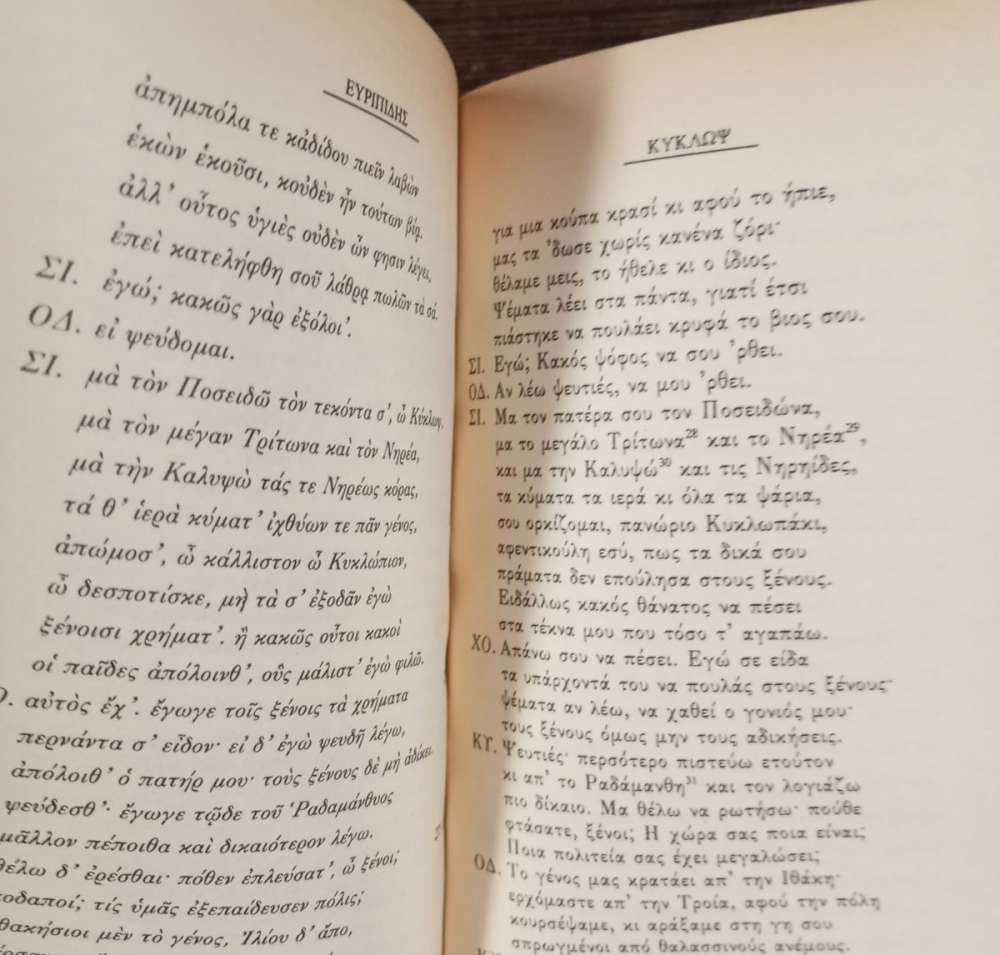 ΕΥΡΙΠΙΔΗΣ
ἀπημπόλα τε κἀδίδου πιεῖν λαβὼν
ἑκὼν ἑκοῦσι, κοὐδὲν ἦν τούτων βίᾳ.
ἀλλ’ οὗτος ὑγιὲς οὐδὲν ὧν φησιν λέγει,
ἐπεὶ κατελήφθη σοῦ λάθρᾳ πωλῶν τὰ σά.
ΣΙ. ἐγώ; κακῶς γὰρ ἐξόλοι’.
ΟΔ. εἰ ψεύδομαι.
ΣΙ. μὰ τὸν Ποσειδῶ τὸν τεκόντα σ’, ὦ Κύκλωψ,
μὰ τὸν μέγαν Τρίτωνα καὶ τὸν Νηρέα,
μὰ τὴν Καλυψὼ τάς τε Νηρέως κόρας,
τά θ’ ἱερὰ κύματ’ ἰχθύων τε πᾶν γένος,
ἀπώμοσ’, ὦ κάλλιστον ὦ Κυκλώπιον,
ὦ δεσποτίσκε, μὴ τὰ σ’ ἐξοδᾶν ἐγὼ
ξένοισι χρήματ’. ἢ κακῶς οὗτοι κακοὶ
οἱ παῖδες ἀπόλοινθ’, οὓς μάλιστ’ ἐγὼ φιλῶ.
Ο. αὐτὸς ἔχ’. ἔγωγε τοῖς ξένοις τὰ χρήματα
περνάντα σ’ εἶδον· εἰ δ’ ἐγὼ ψευδῆ λέγω,
ἀπόλοιθ’ ὁ πατήρ μου· τοὺς ξένους δὲ μὴ ἀδίκει.
ψεύδεσθ’· ἔγωγε τῷδε τοῦ Ῥαδαμάνθυος
μᾶλλον πέποιθα καὶ δικαιότερον λέγω.
θέλω δ’ ἐρέσθαι· πόθεν ἐπλεύσατ’, ὦ ξένοι;
οδαποί; τίς ὑμᾶς ἐξεπαίδευσεν πόλις;
θακήσιοι μὲν τὸ γένος, Ἰλίου δ’ ἄπο,
ΚΥΚΛΩΨ
για μια κούπα κρασί κι αφού το ήπιε,
μας τα ’δωσε χωρίς κανένα ζόρι·
θέλαμε μεις, το ήθελε κι ο ίδιος.
Ψέματα λέει στα πάντα, γιατί έτσι
πιάστηκε να πουλάει κρυφά το βιος σου.
ΣΙ. Εγώ; Κακός ψόφος να σου ’ρθει.
ΟΔ. Αν λέω ψευτιές, να μου ’ρθει.
ΣΙ. Μα τον πατέρα σου τον Ποσειδώνα,
μα το μεγάλο Τρίτωνα²⁸ και το Νηρέα²⁹,
και μα την Καλυψώ³⁰ και τις Νηρηίδες,
τα κύματα τα ιερά κι όλα τα ψάρια,
σου ορκίζομαι, πανώριο Κυκλωπάκι,
αφεντικούλη εσύ, πως τα δικά σου
πράματα δεν επούλησα στους ξένους.
Ειδάλλως κακός θάνατος να πέσει
στα τέκνα μου που τόσο τ’ αγαπάω.
ΧΟ. Απάνω σου να πέσει. Εγώ σε είδα
τα υπάρχοντά του να πουλάς στους ξένους·
ψέματα αν λέω, να χαθεί ο γονιός μου·
τους ξένους όμως μην τους αδικήσεις.
ΚΥ. Ψευτιές· περσότερο πιστεύω ετούτον
κι απ’ το Ραδάμανθη³¹ και τον λογιάζω
πιο δίκαιο. Μα θέλω να ρωτήσω· πούθε
φτάσατε, ξένοι; Η χώρα σας ποια είναι;
Ποια πολιτεία σας έχει μεγαλώσει;
ΟΔ. Το γένος μας κρατάει απ’ την Ιθάκη·
ερχόμαστε απ’ την Τροία, αφού την πόλη
κουρσέψαμε, κι αράξαμε στη γη σου
σπρωγμένοι από θαλασσινούς ανέμους.